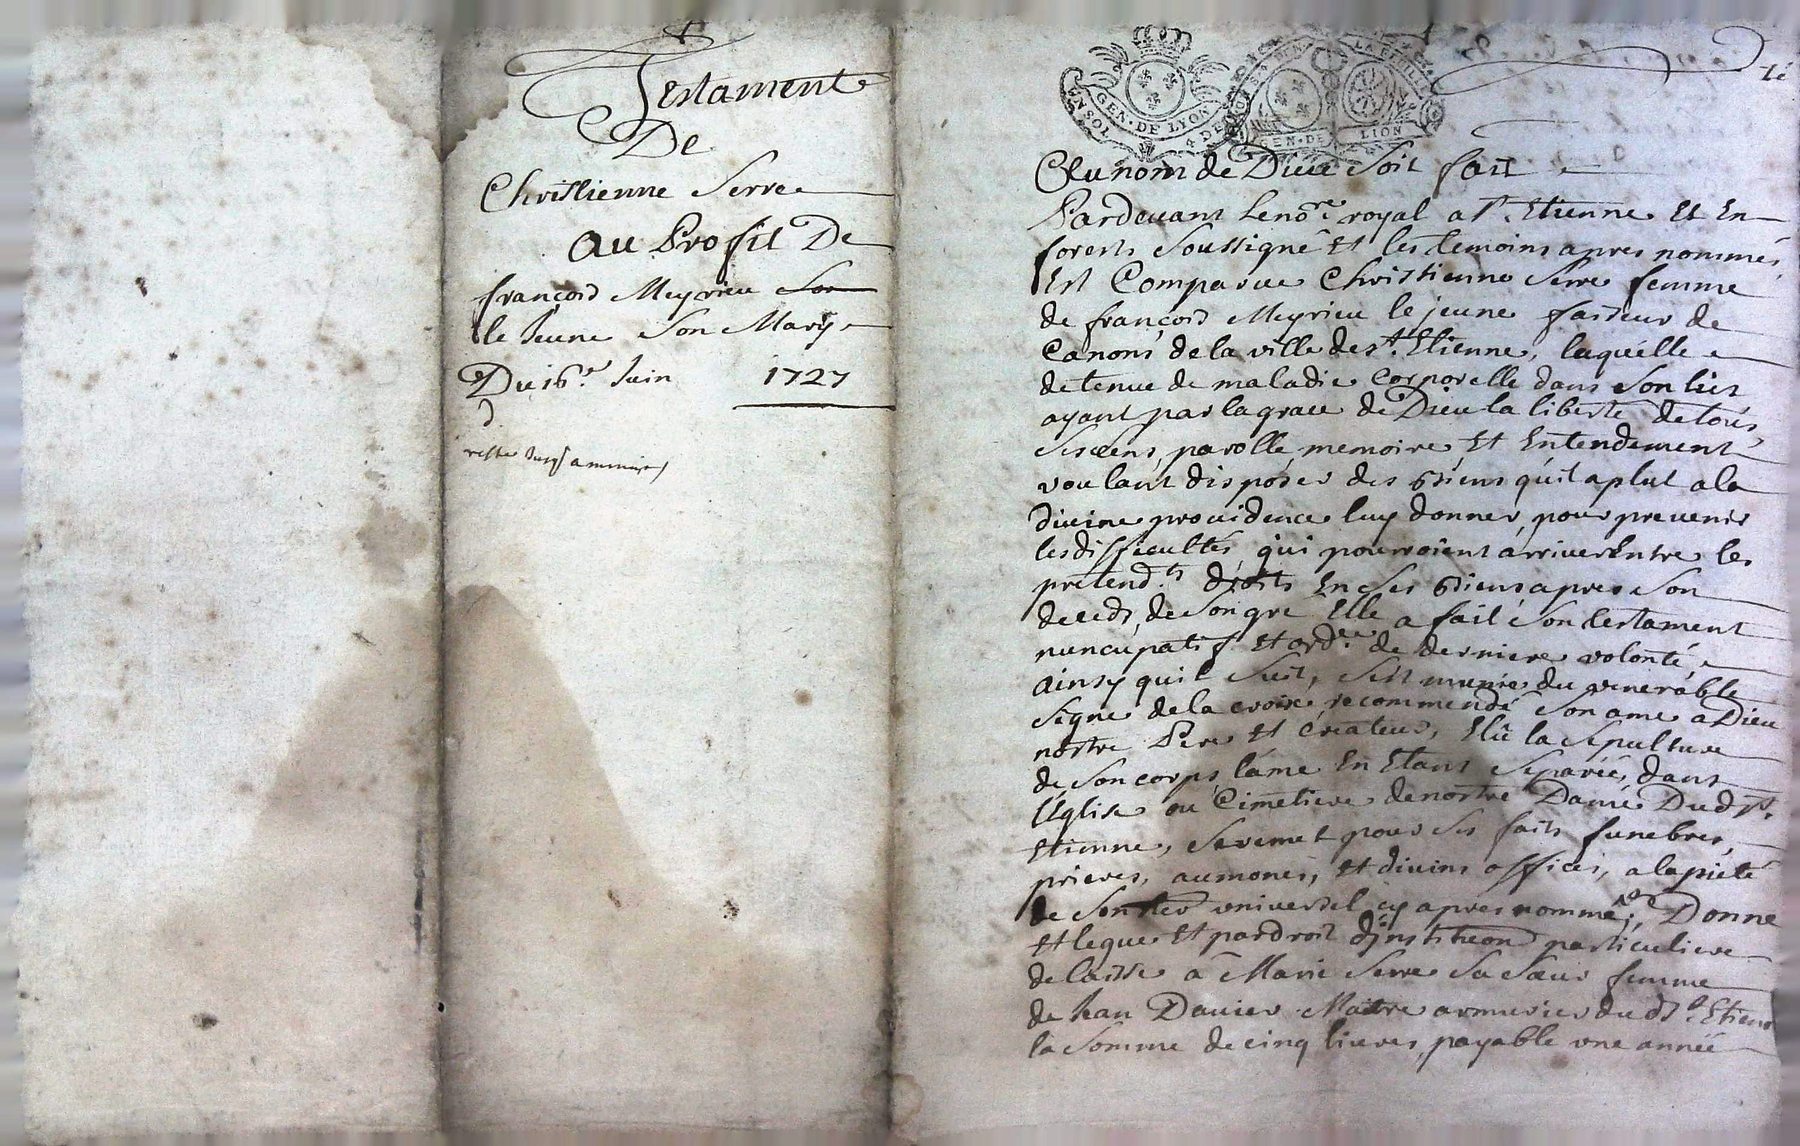 Testament
De
Christienne Serre
Au Profit De
françois Meyrieu Son
le Jeune Son Mary
Du 16.e Juin 1727
UN SOL
GEN · DE LYON
GEN · DE LION
Au nom de Dieu Soit fait
Pardevant le no.re royal a S.t Etienne Et En
forests Soussigné Et les temoins apres nommés,
Est Comparue Christienne Serre femme
de françois Meyrieu le jeune faiseur de
Canons de la ville de s.t Etienne, laquelle
detenue de maladie Corporelle dans Son lict
ayant par la grace de Dieu la liberté de tous
Ses sens, parolle, memoire Et Entendement
voulant disposer des biens qu'il a plut a la
divine providence luy donner, pour prevenir
les difficultés qui pourroient arriver Entre les
pretend.ts droits En Ses biens apres Son
deceds, de Son gre Elle a fait Son testament
nuncupatif Et ord.ce de derniere volonté
ainsy quil Suit, S'est munie du venerable
Signe de la croix recommendé Son ame a Dieu
nostre Pere Et Createur, Elû la Sepulture
de Son corps, l'ame En Etant Separée, dans
l'Eglise ou Cimetiere de nostre Dame Dud.t S.t
Etienne, Se remet pour Ses fraits funebres,
prieres, aumones, Et divins offices, a la pieté
de Son her universel cy apres nommé, Donne
Et legue Et par droit d'institu͠on particuliere
delaisse a Marie Serre Sa Sœur femme
de Jean Davier Maitre armurier dud S.t Etienne
la Somme de cinq livres, payable une année